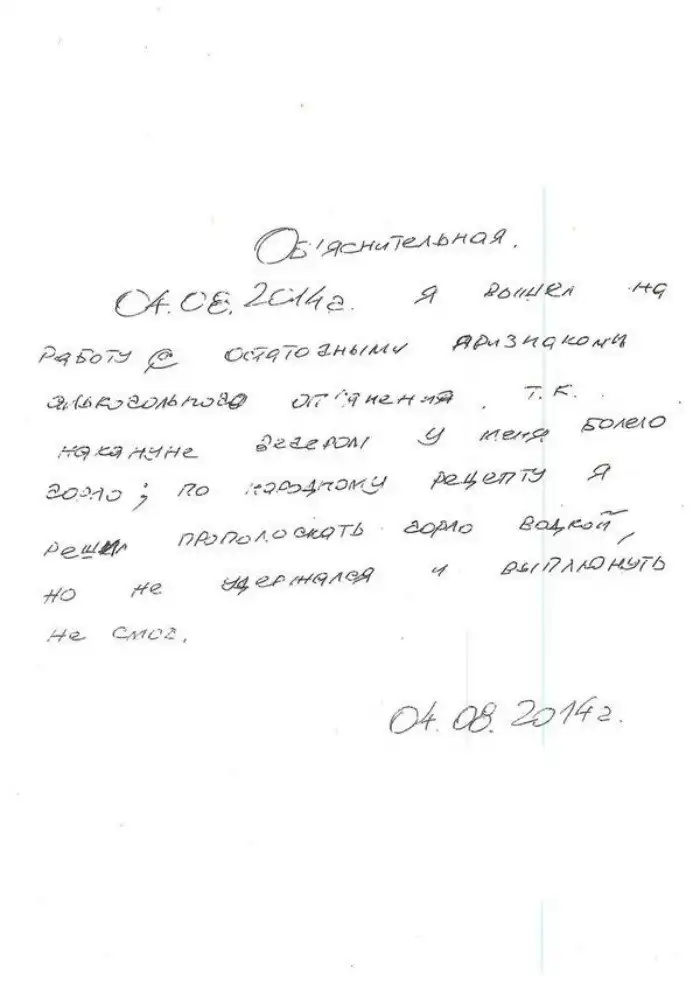 Об'яснительная.
04.08.2014г. я вышел на
работу с остаточными признаками
алькогольного оп'янения, т.к.
накануне вечером у меня болело
горло; по народному рецепту я
решил прополоскать горло водкой,
но не удержался и выплюнуть
не смог.
04.08.2014г.